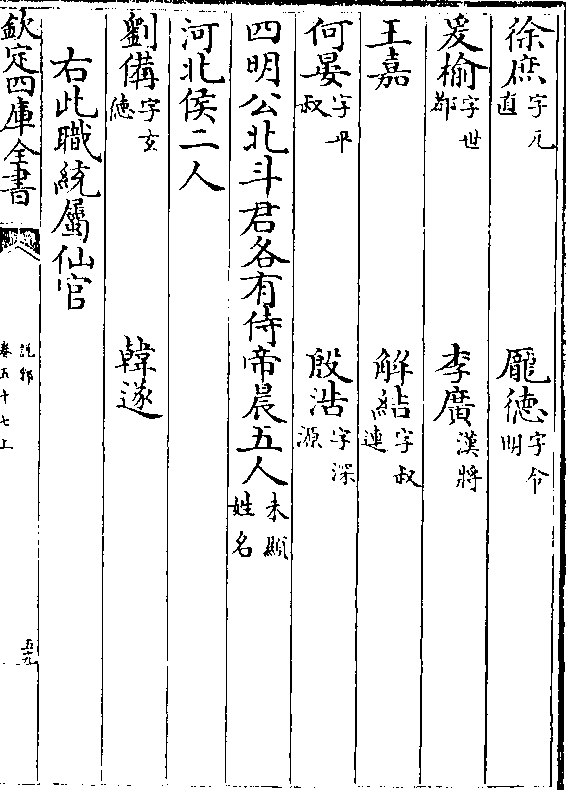 徐庶字元直　龐德字令明
爰榆字世都　李廣漢將
王嘉　解結字叔連
何晏字平叔　殷浩字深源
四明公北斗君各有侍帝晨五人未顯姓名
河北侯二人
劉備字玄德　韓遂
右此職統屬仙官
欽定四庫全書　說郛卷五十七上　五九